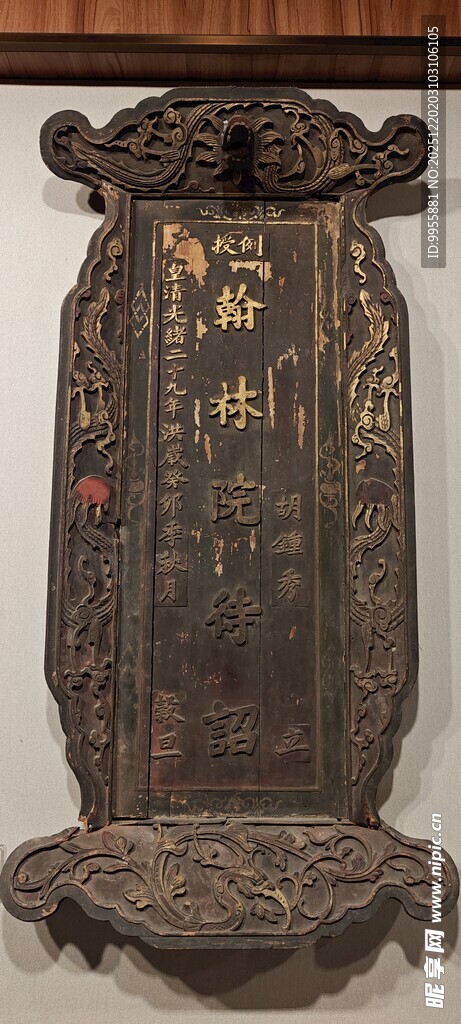 例授
胡鍾秀 立
翰林院待詔
皇清光緒二十九年洪歲癸卯季秋月 穀旦
ID:9955881 NO:20251220203103106105
昵享网 www.nipic.cn